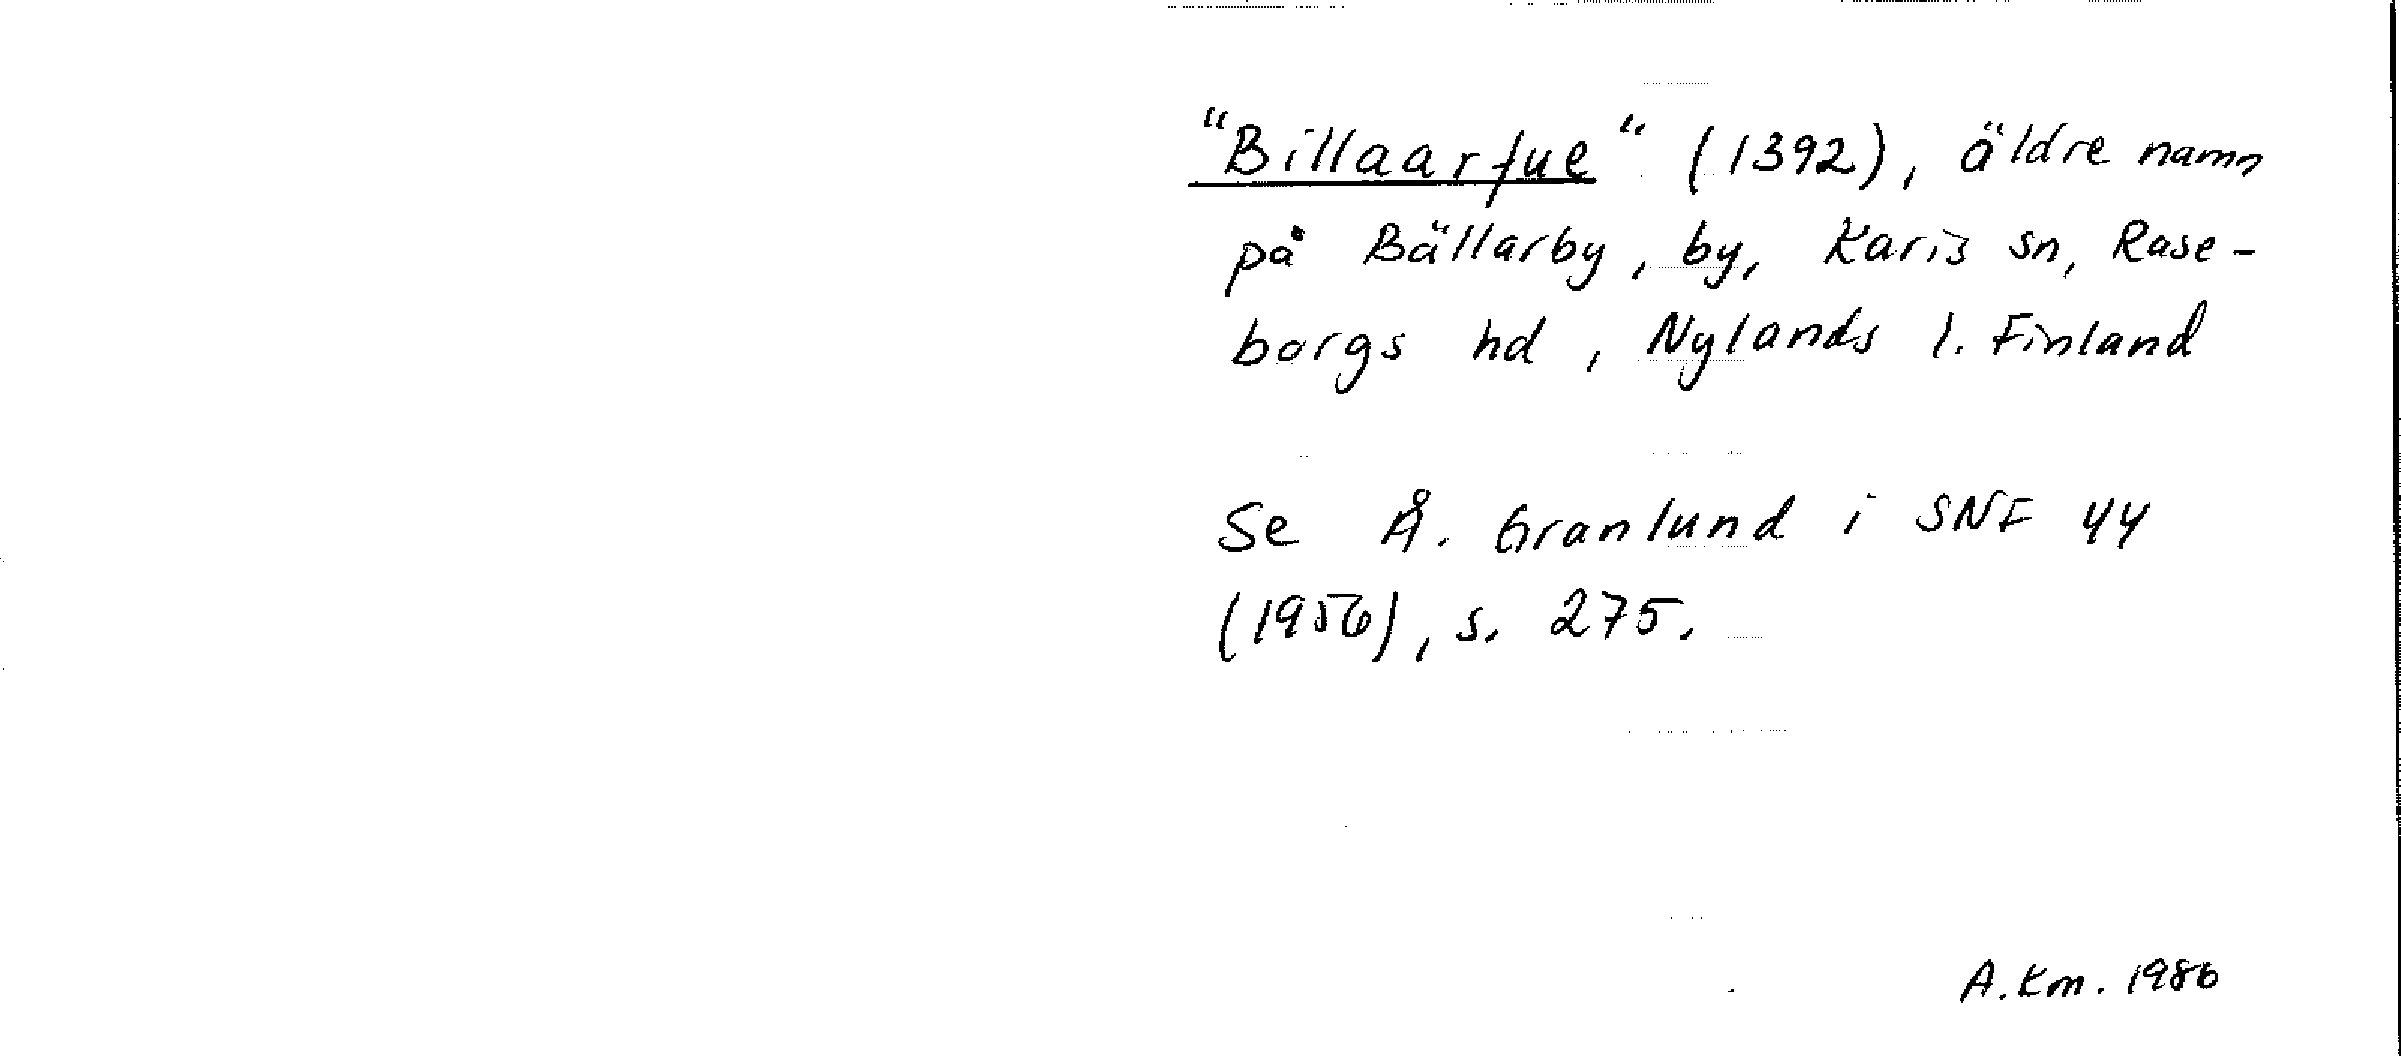 "Billaarfue" (1392), äldre namn
på Bällarby, by, Karis sn, Rase-
borgs hd, Nylands l. Finland
Se Å. Granlund i SNF 44
(1956), s. 275.
A.Km. 1986